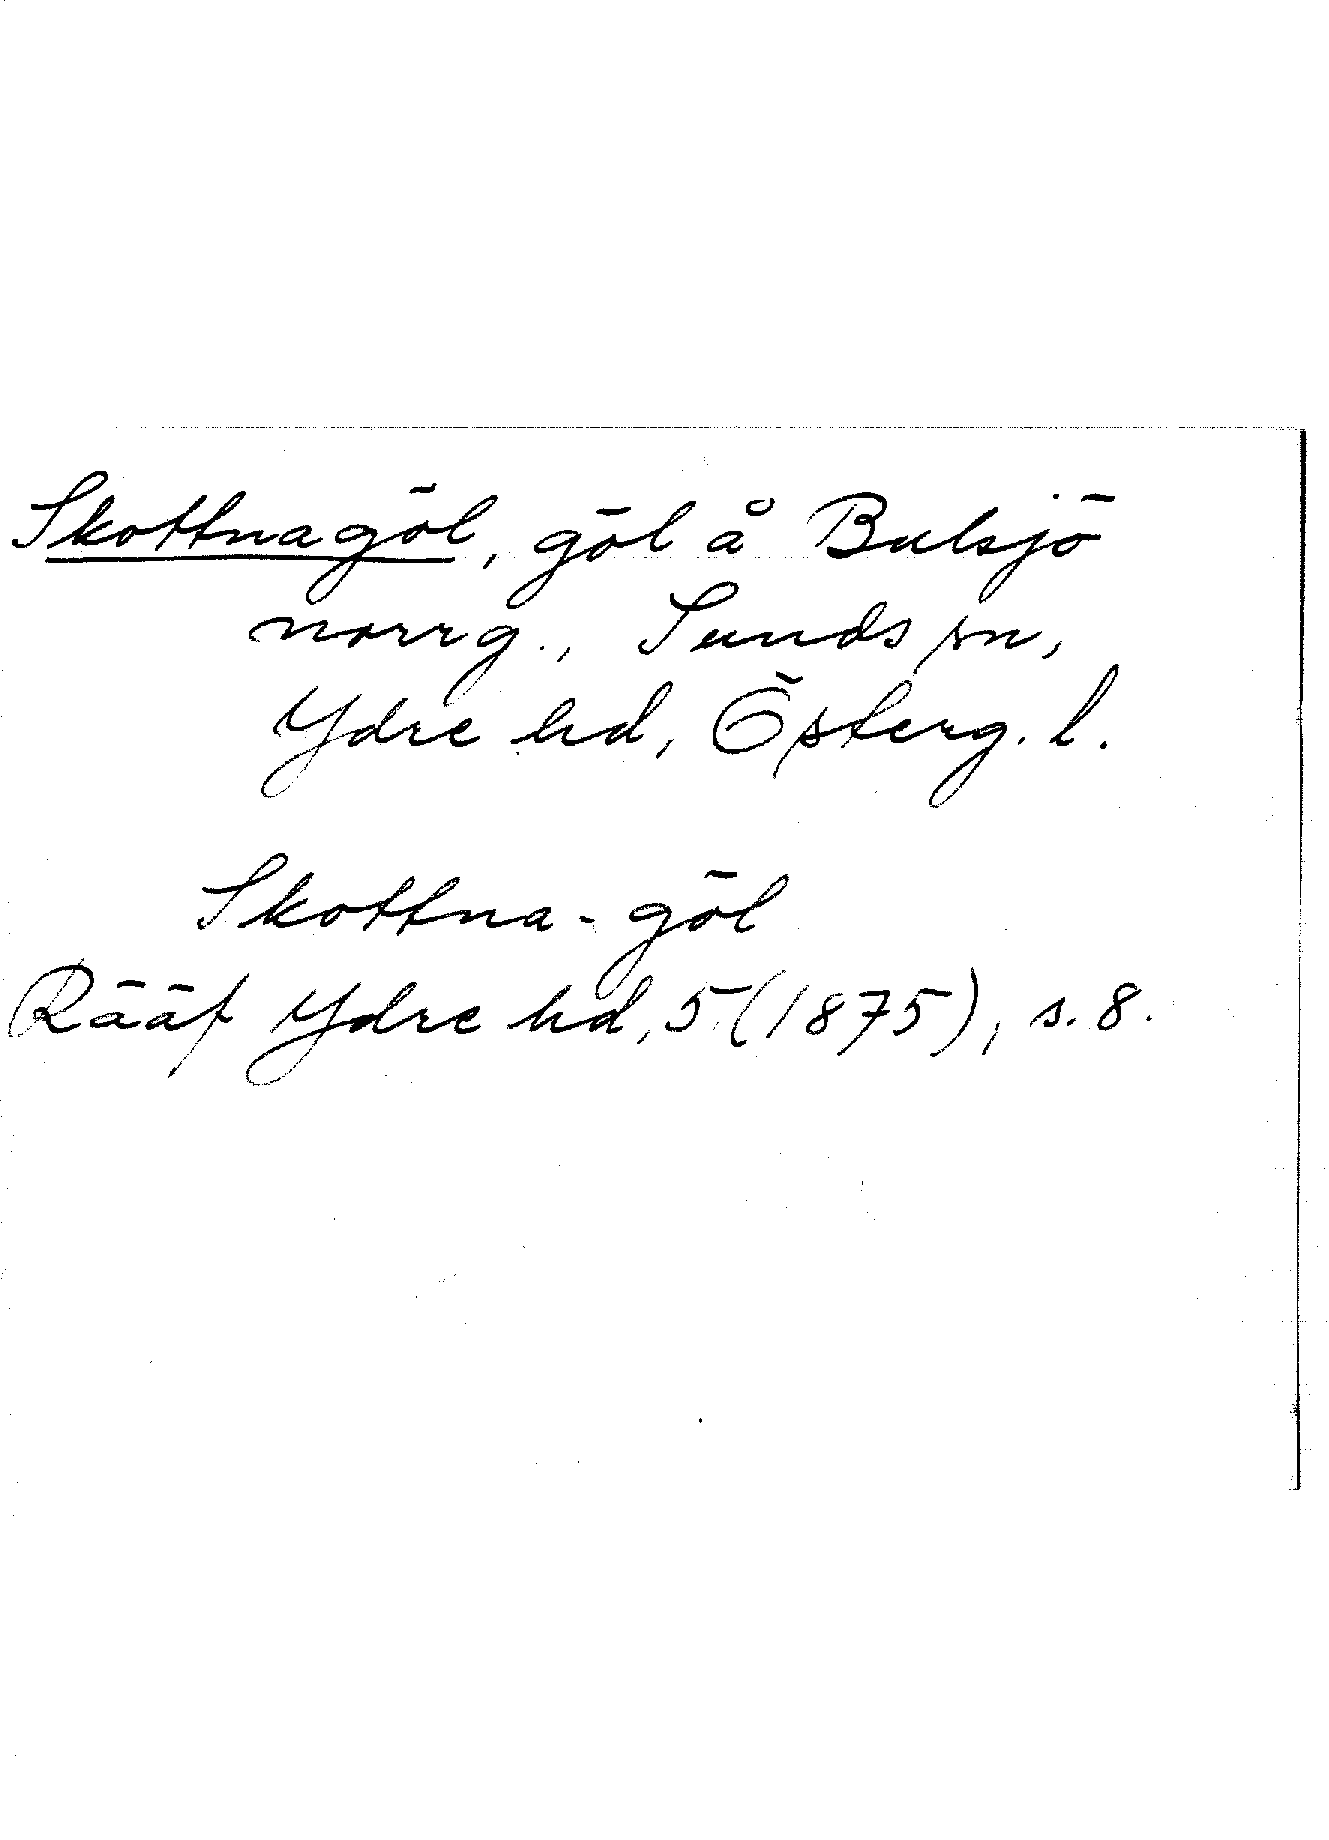 Skottnagöl, göl å Bulsjö
norrg., Sunds sn,
Ydre hd, Österg. l.
Skottna-göl
Rääf Ydre hd, 5 (1875), s. 8.